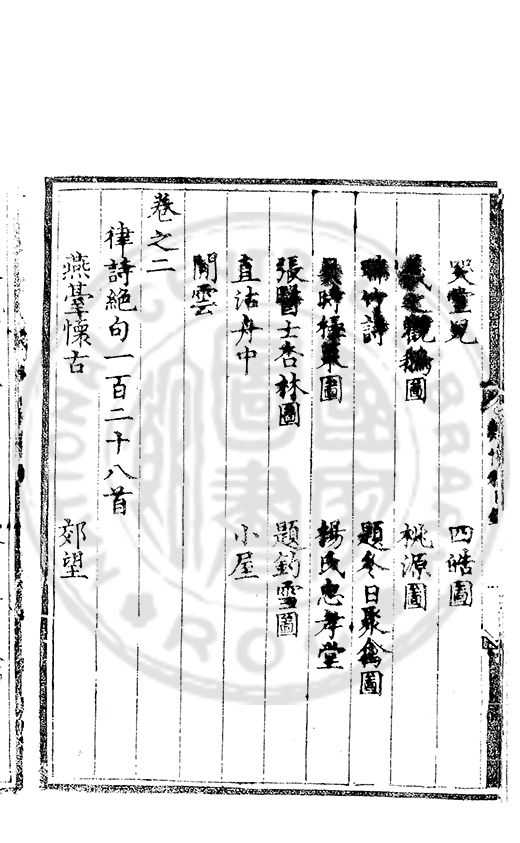 哭靈兒　四皓圖
羲之觀鵝圖　桃源圖
聯竹詩　題冬日聚禽圖
　楊氏忠孝堂
張醫士杏林圖　題釣雪圖
直沽舟中　小屋
閒雲
卷之二
律詩絕句一百二十八首
燕臺懷古　郊望